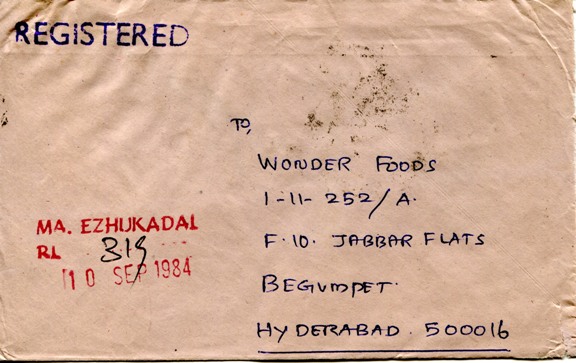 REGISTERED
TO,
WONDER FOODS
1-11-252/A.
F.10. JABBAR FLATS
BEGUMPET.
HYDERABAD. 500016
MA. EZHUKADAL
RL 319
10 SEP 1984